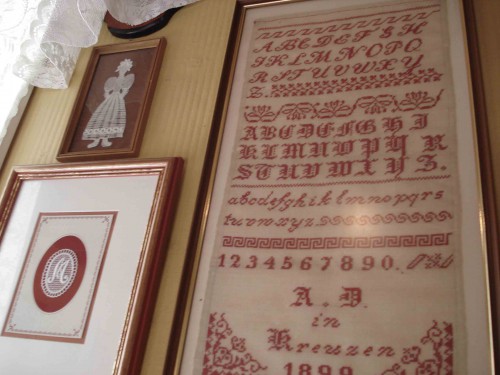 ABCDEFGH
IKLMNOPQ
RSTUVWXY
Z.
ABCDEFGHI
KLMNOPQR
STUVWXYZ.
abcdefghiklmnopqrs
tuvwxyz
1234567890.
A.D.
in
Kreuzen
1899